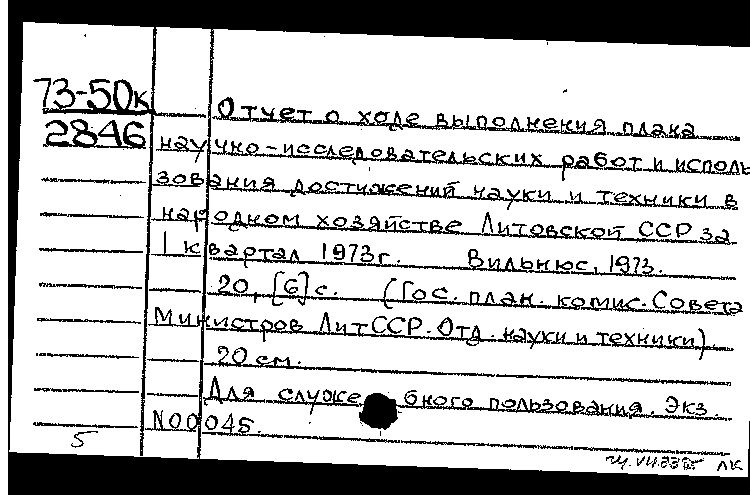 73-50к
2846
Отчет о ходе выполнения плана
научно-исследовательских работ и исполь
зования достижений науки и техники в
народном хозяйстве Литовской ССР за
I квартал 1973г. Вильнюс, 1973.
20, [6] с. (Гос. план. комис. Совета
Министров ЛитССР. Отд. науки и техники)
20 см.
Для служебного пользования. Экз.
N00045.
5
лк